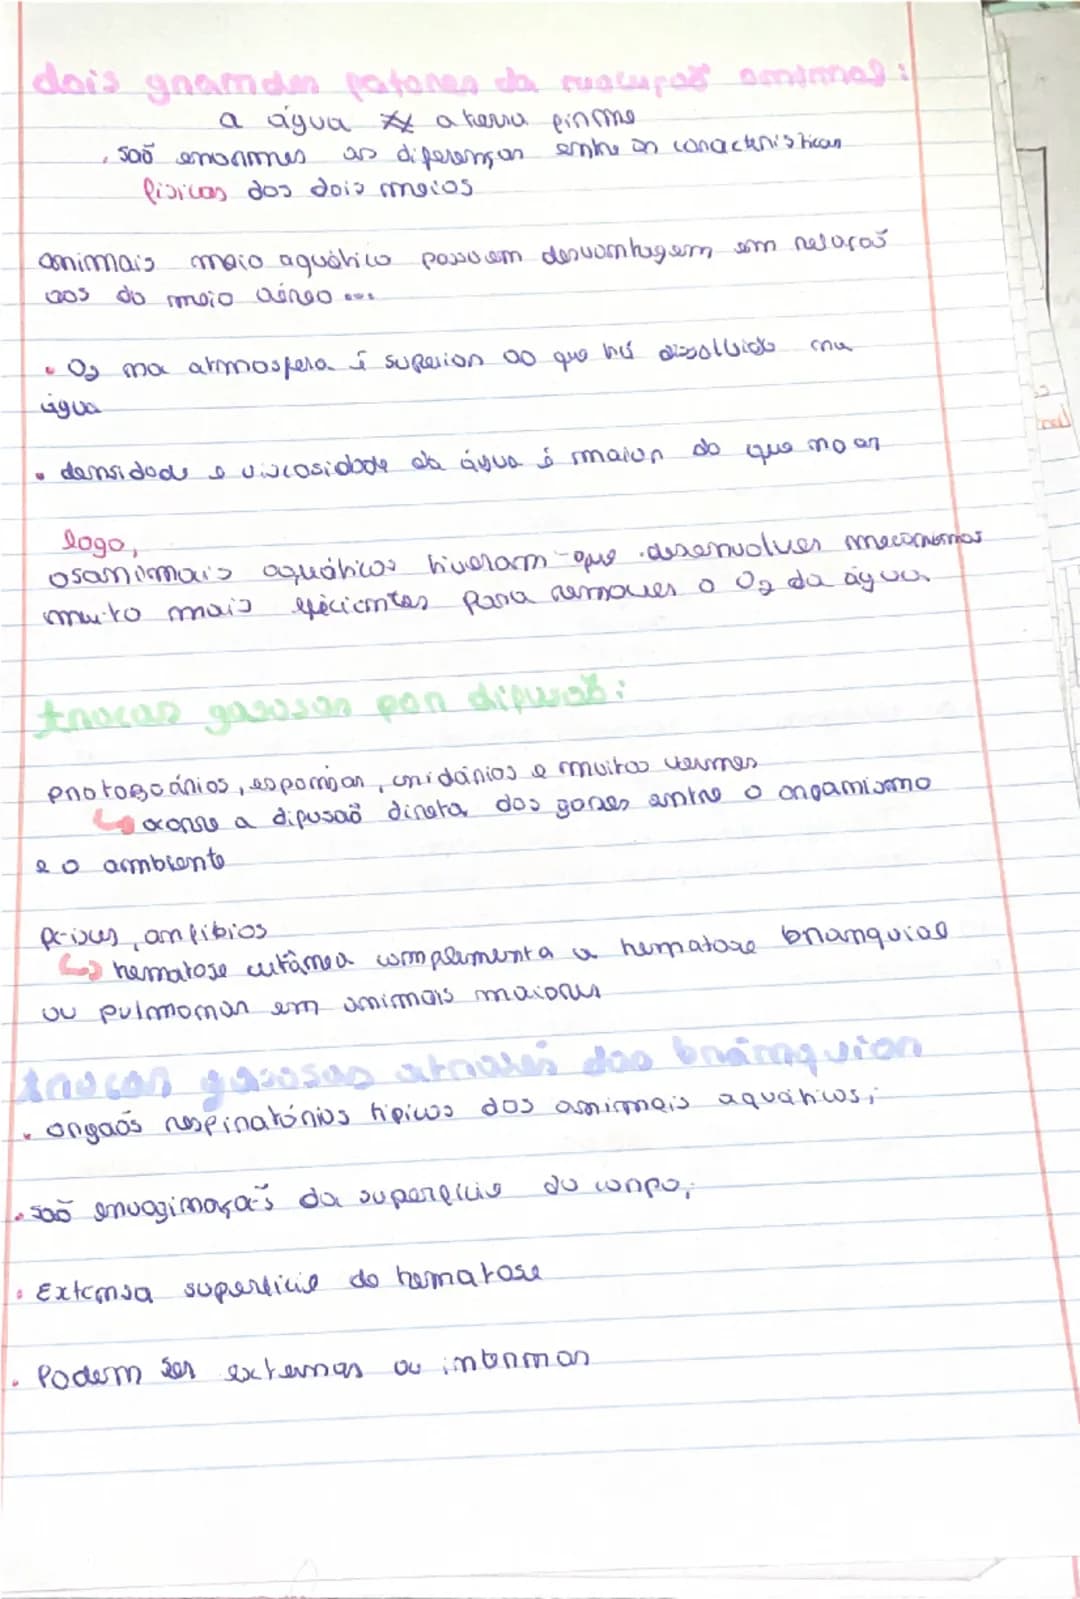 dois grandes fatores da evolução animal:
a água x a terra firme
são enormes as diferenças entre as características
físicas dos dois meios
animais meio aquático possuem desvantagem em relação
aos do meio aéreo ...
• O2 na atmosfera é superior ao que há dissolvido na
água
• densidade e viscosidade da água é maior do que no ar
logo,
os animais aquáticos tiveram que desenvolver mecanismos
muito mais eficientes para remover o O2 da água
trocas gasosas por difusão:
protozoários, esponjas, cnidários e muitos vermes
↳ ocorre a difusão direta dos gases entre o organismo
e o ambiente
peixes, anfíbios
↳ hematose cutânea complementa a hematose branquial
ou pulmonar em animais maiores
trocas gasosas através das brânquias
• orgãos respiratórios típicos dos animais aquáticos;
• são envaginações da superfície do corpo;
• Extensa superfície de hematose
• Podem ser externas ou internas